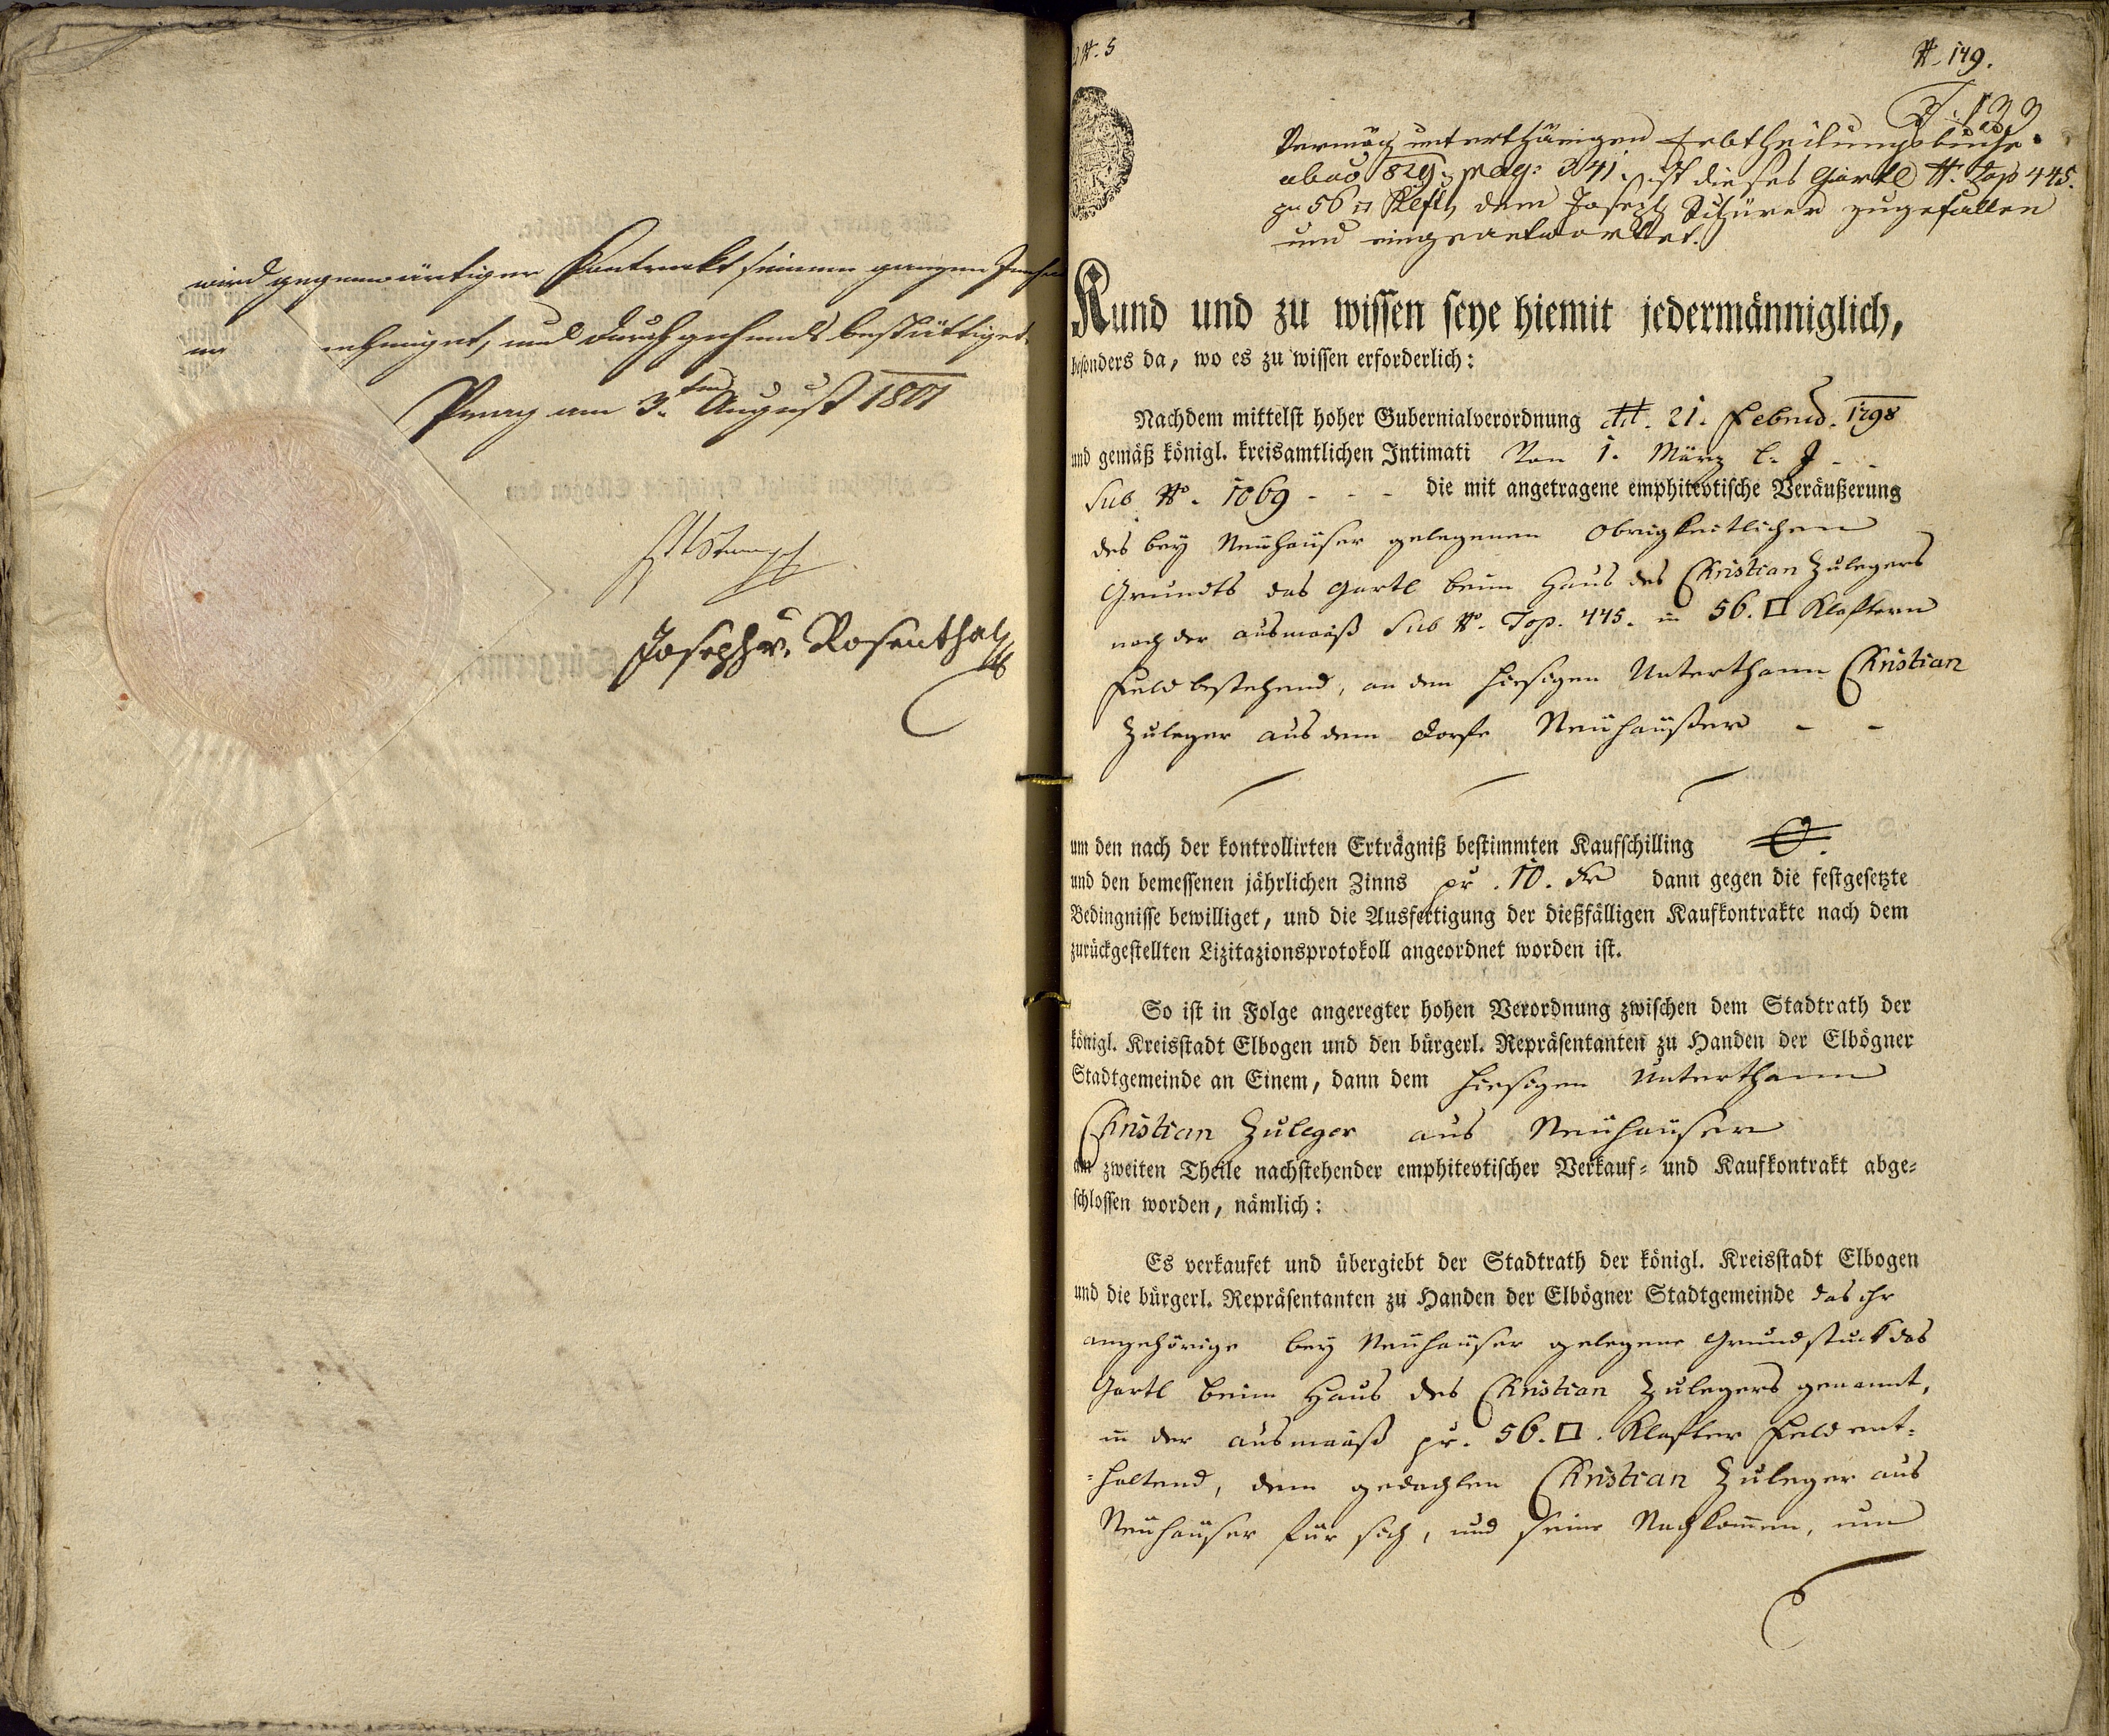 wird gegenwärtiger Contrackt seinem ganzen
und durchgehends bestättiget.
Praag am 3ten August 1801
Joseph v. Rosenthal
N. 5
N. 149.
Vermög unterthänigen Erbtheilungsbuche
pag: 341. ist dieses Gartl N. Top 445.
zu 56 □ Klft. dem Joseph Schürer zugefallen
und eingeantwortet.
Kund und zu wissen seye hiemit jedermänniglich,
besonders da, wo es zu wissen erforderlich:
Nachdem mittelst hoher Gubernialverordnung dtt. 21. Februd. 1798
und gemäß königl. kreisamtlichen Intimati Von 1. März l. J - -
Sub No. 1069 - - - die mit angetragene emphitevtische Veräußerung
des bey Neühaüser gelegenen Obrigkeitlichen
Grundts das Gartl beim Haus des Christian Zulegers
nach der ausmaaß Sub No. Top. 445. in 56. □ Klaftern
Feld bestehend, an den hiesigen Unterthann Christian
Zuleger aus dem Dorfe Neühaüßer - -
um den nach der kontrollirten Erträgniß bestimmten Kaufschilling
und den bemessenen jährlichen Zinns pr. 10. Kr dann gegen die festgesetzte
Bedingnisse bewilliget, und die Ausfertigung der dießfälligen Kaufkontrakte nach dem
zurückgestellten Lizitazionsprotokoll angeordnet worden ist.
So ist in Folge angeregter hohen Verordnung zwischen dem Stadtrath der
königl. Kreisstadt Elbogen und den bürgerl. Repräsentanten zu Handen der Elbögner
Stadtgemeinde an Einem, dann dem hiesigen Unterthann
Christian Zuleger aus Neühaüser
am zweiten Theile nachstehender emphitevtischer Verkauf= und Kaufkontrakt abge=
schlossen worden, nämlich:
Es verkaufet und übergiebt der Stadtrath der königl. Kreisstadt Elbogen
und die bürgerl. Repräsentanten zu Handen der Elbögner Stadtgemeinde das ihr
angehörige bey Neühaüser gelegene Grundstuck das
Gartl beim Haus des Christian Zulegers genannt,
in der ausmaaß pr. 56. □. Klafter Feld ent=
=haltend, dem gedachten Christian Zuleger aus
Neühaüser für sich, und seine Nachkom̄en, um